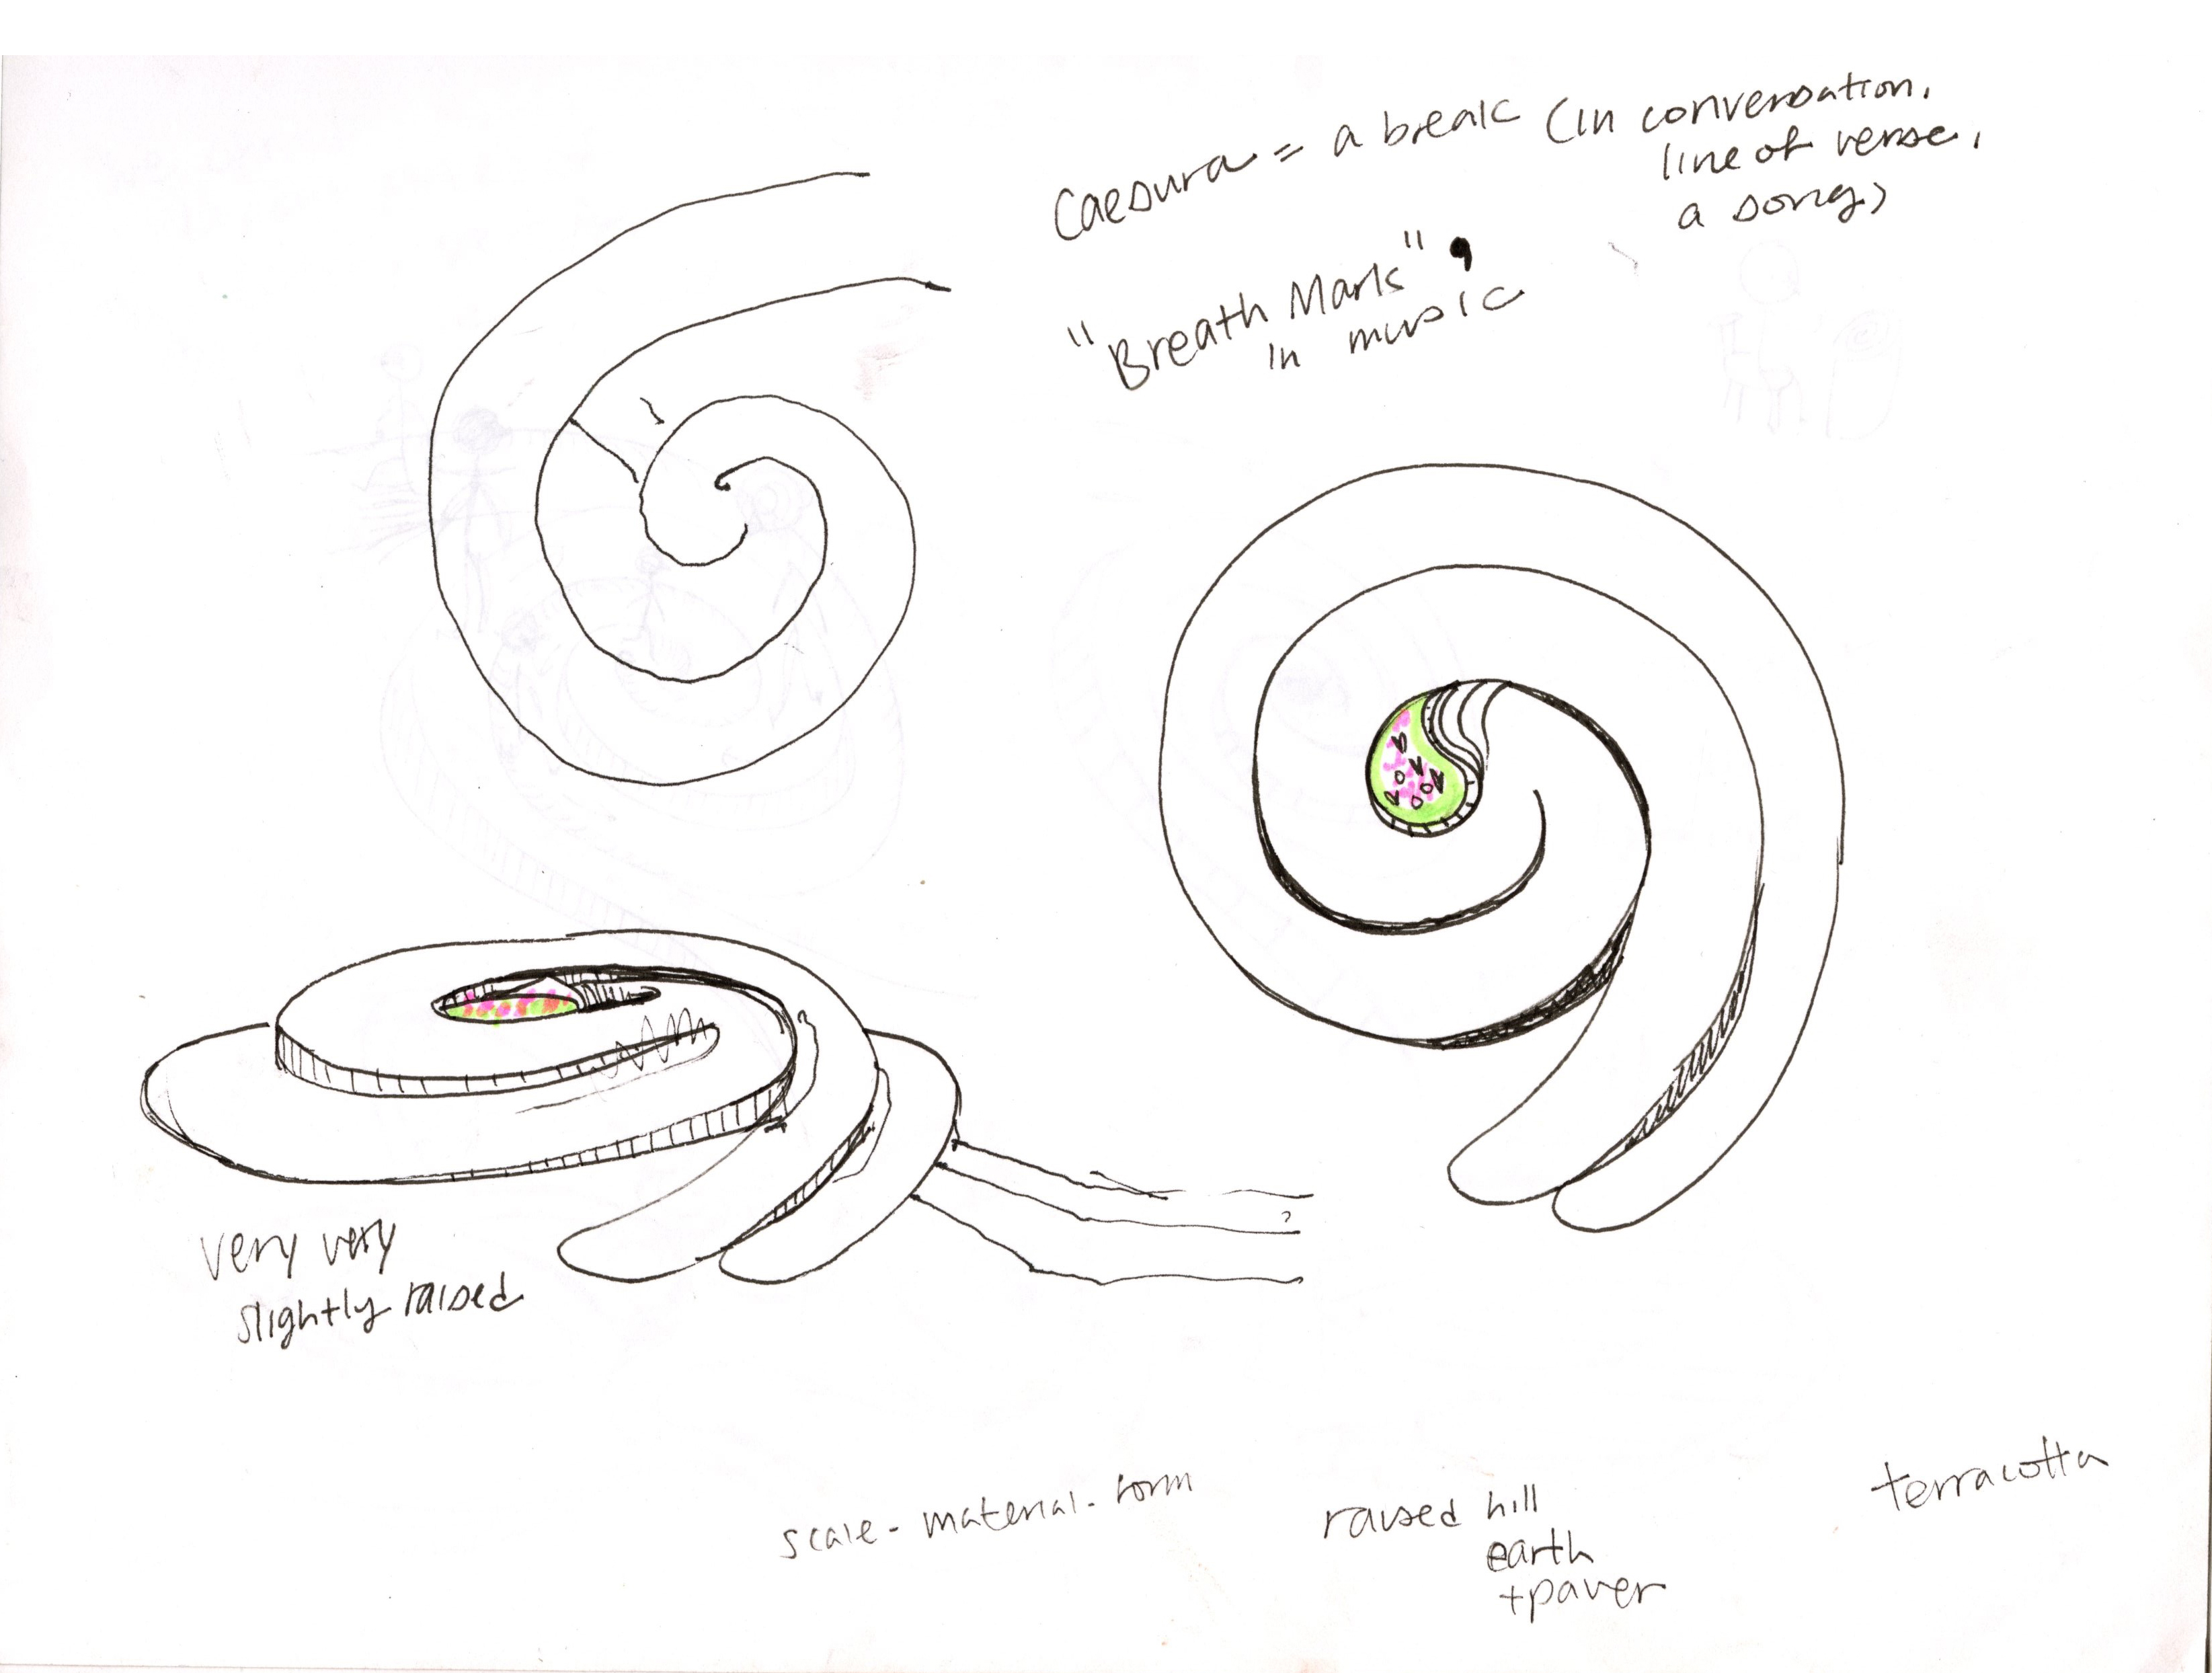 Caesura = a break (in conversation,
line of verse,
a song)
"Breath Mark" ,
in music
?
?
very very
slightly raised
scale - material - form
raised hill
earth
+ paver
terracotta